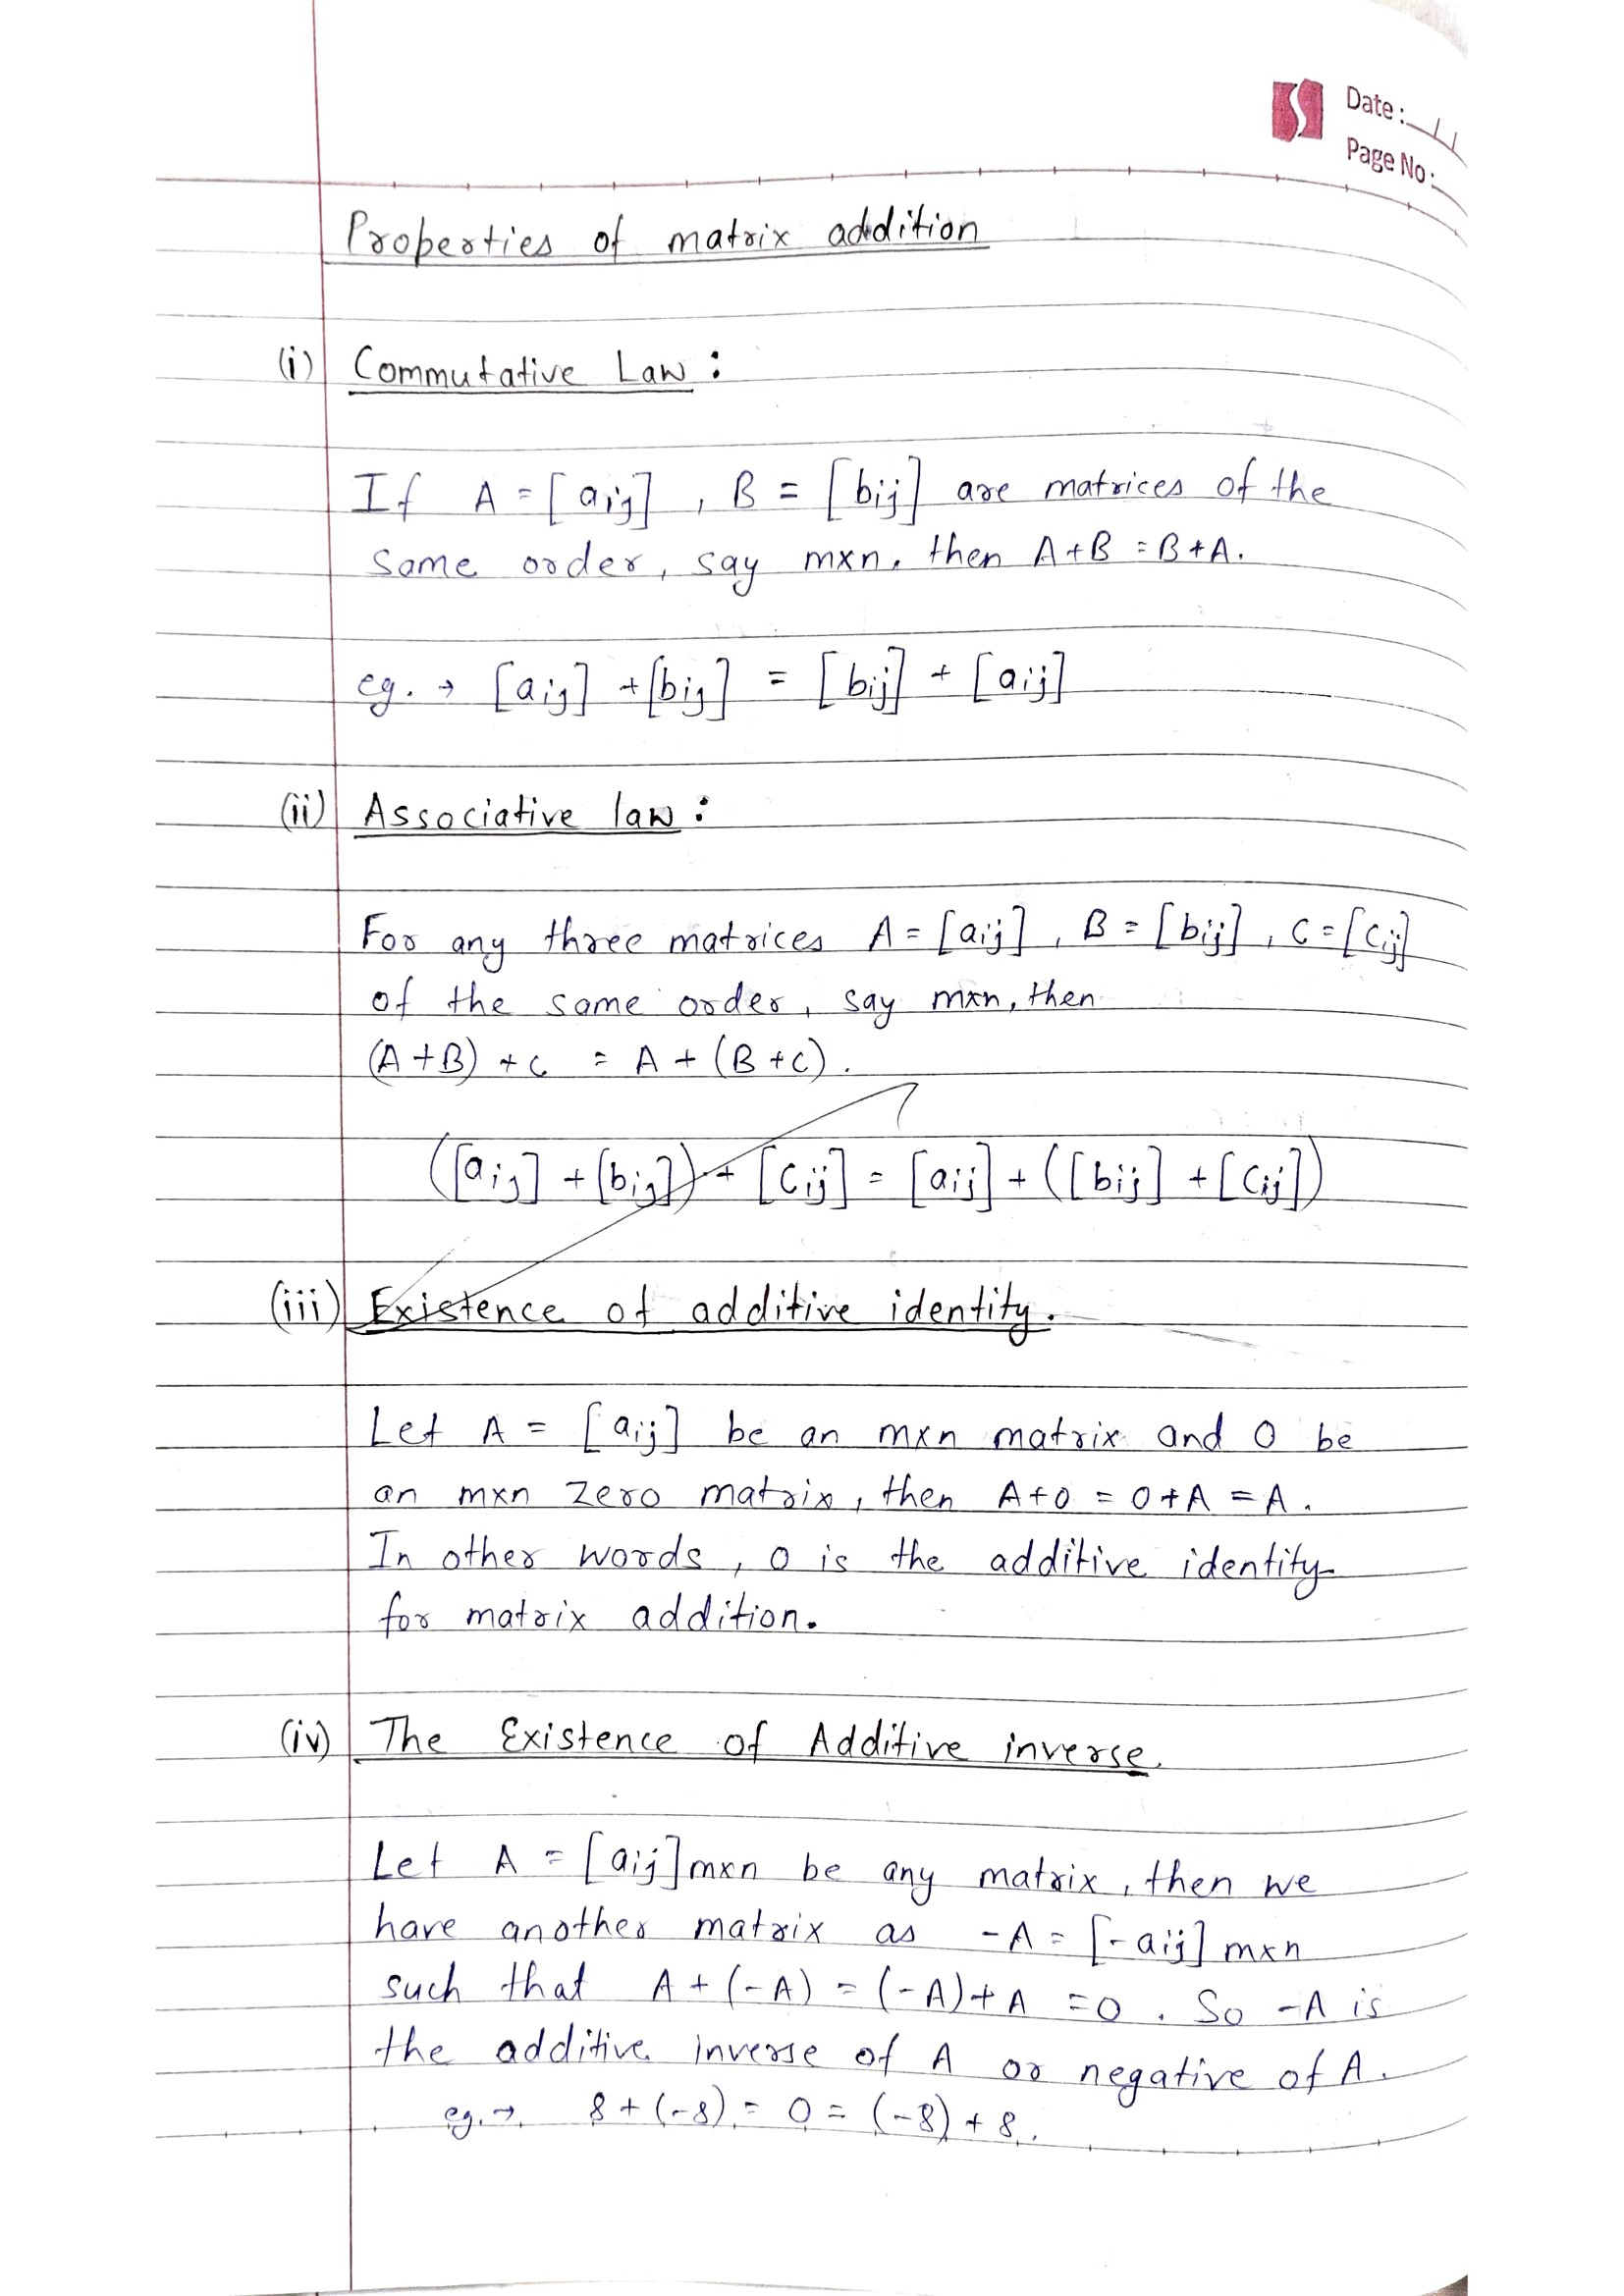 Date :
Page No :
Properties of matrix addition
(i) Commutative Law :
If A = [aij] , B = [bij] are matrices of the
same order, say m×n, then A+B = B+A.
eg. → [aij] + [bij] = [bij] + [aij]
(ii) Associative law :
For any three matrices A = [aij] , B = [bij] , C = [Cij]
of the same order, say m×n, then
(A+B) + C = A + (B+C) .
([aij] + [bij]) + [Cij] = [aij] + ([bij] + [Cij])
(iii) Existence of additive identity.
Let A = [aij] be an m×n matrix and O be
an m×n zero matrix, then A+O = O+A = A.
In other words, O is the additive identity
for matrix addition.
(iv) The Existence of Additive inverse.
Let A = [aij]m×n be any matrix, then we
have another matrix as -A = [-aij] m×n
such that A + (-A) = (-A)+A = O . So -A is
the additive inverse of A or negative of A.
eg. → 8 + (-8) = 0 = (-8) + 8.